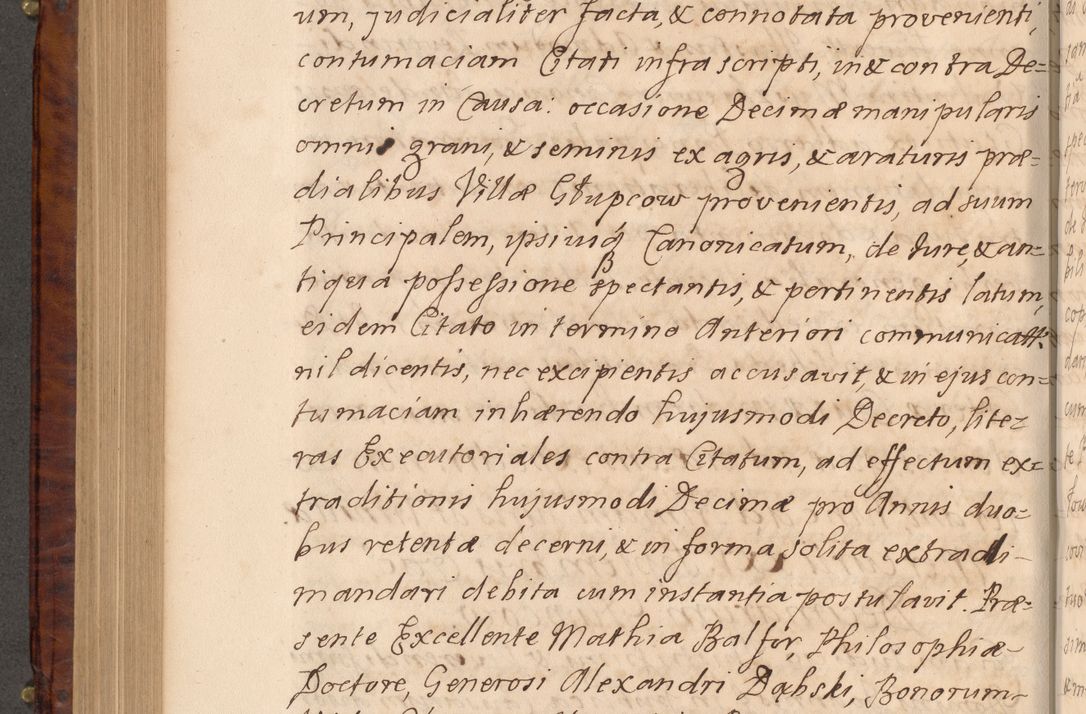 um, judicialiter facta, & connotata provenienti,
contumaciam Citati infrascripti, in & contra De=
cretum in Causa: occasione Decimæ manipularis
omnis grani, & seminis ex agris, & araturis præ=
dialibus Villæ Głupcow provenientis, ad suum
Principalem, ipsiusq́ Canonicatum, de Iure, & an=
tiqua possessione spectantis, & pertinentis latum,
eidem Citato in termino Anteriori communicatt.
nil dicentis, nec excipientis accusavit, & in ejus con=
tumaciam inhærendo hujusmodi Decreto, lite=
ras Executoriales contra Citatum, ad effectum ex=
traditionis hujusmodi Decimæ pro Annis duo=
bus retentæ decerni, & in forma solita extradi
mandari debita cum instantia postulavit. Præ=
sente Excellente Mathia Balfor, Philosophiæ
Doctore, Generosi Alexandri Dąbski, Bonorum